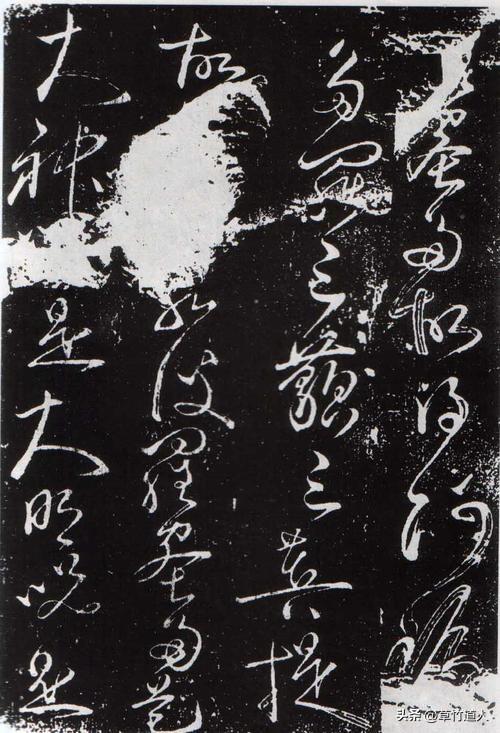 蜜多故得阿耨
多羅三藐三菩提
故若波羅蜜多是
大神是大明咒是
头条 @草竹道人